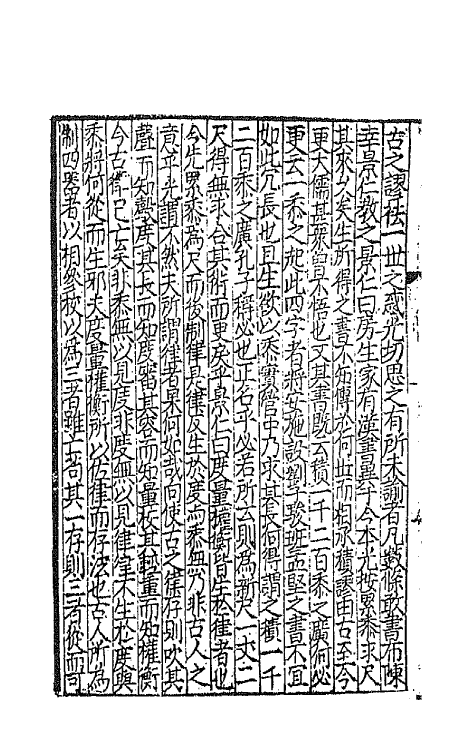 古之謬祛一世之惑光切思之有所未諭者凡數條敢書布陳
幸景仁教之景仁曰房生家有漢書異于今本光按累黍求尺
其來久矣生所得之書不知傳於何世而相承積謬由古至今
更大儒甚衆曾不悟也又其書既云積一千二百黍之廣何必
更云一黍之起此四字者將安施設劉子駿班孟堅之書不宜
如此冗長也且生欲以黍實管中乃求其長何得謂之積一千
二百黍之廣孔子稱必也正名乎必若所云則為新尺一丈二
尺得無求合其術而更戾乎景仁曰度量權衡皆生於律者也
今先累黍為尺而後制律是律反生於度而黍無乃非古人之
意乎光謂不然夫所謂律者果何如哉向使古之律存則吹其
聲而知聲度其長而知度審其容而知量校其輕重而知權衡
今古律已亡矣非黍無以見度非度無以見律律不生於度與
黍將何從而生邪夫度量權衡所以佐律而存法也古人所為
制四器者以相參校以為三者雖亡苟其一存則三者從而可